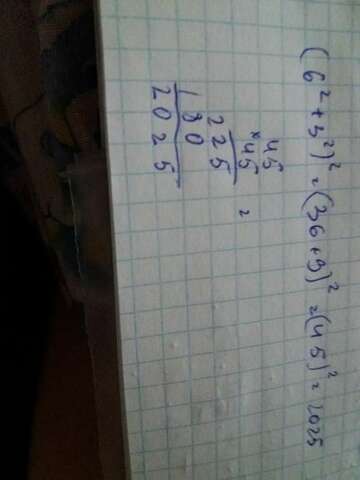 (6² + 3²)² = (36+9)² = (45)² = 2025
45 =
×45
225
180
2025